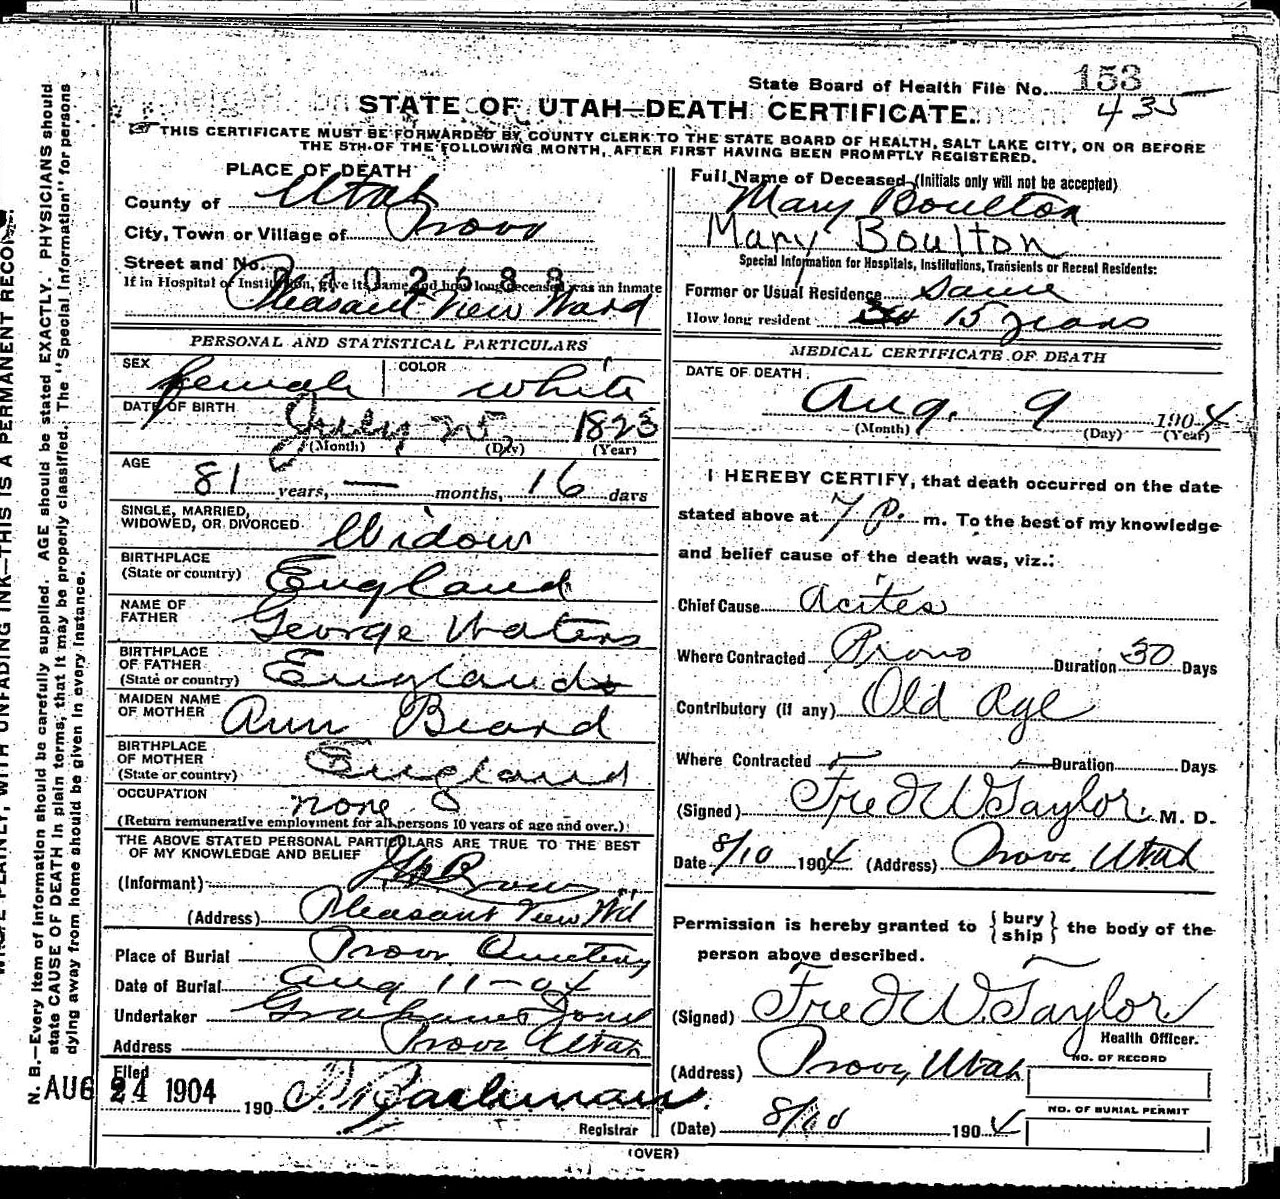 State Board of Health File No. 153
435
STATE OF UTAH—DEATH CERTIFICATE.
THIS CERTIFICATE MUST BE FORWARDED BY COUNTY CLERK TO THE STATE BOARD OF HEALTH, SALT LAKE CITY, ON OR BEFORE
THE 5TH OF THE FOLLOWING MONTH, AFTER FIRST HAVING BEEN PROMPTLY REGISTERED.
PLACE OF DEATH
County of Utah
City, Town or Village of Provo
Street and No.
If in Hospital or Institution, give its name and how long deceased was an inmate
Pleasant View Ward
PERSONAL AND STATISTICAL PARTICULARS
SEX female COLOR white
DATE OF BIRTH July 25 1823
(Month) (Day) (Year)
AGE
81 years, — months, 16 days
SINGLE, MARRIED,
WIDOWED, OR DIVORCED Widow
BIRTHPLACE
(State or country) England
NAME OF
FATHER George Waters
BIRTHPLACE
OF FATHER
(State or country) England
MAIDEN NAME
OF MOTHER Ann Beard
BIRTHPLACE
OF MOTHER
(State or country) England
OCCUPATION none
(Return remunerative employment for all persons 10 years of age and over.)
THE ABOVE STATED PERSONAL PARTICULARS ARE TRUE TO THE BEST
OF MY KNOWLEDGE AND BELIEF
(Informant)
(Address) Pleasant View Wd
Place of Burial Provo Cemetery
Date of Burial Aug 11-04
Undertaker
Address Provo Utah
Filed
AUG 24 1904 190
Registrar
Full Name of Deceased (Initials only will not be accepted)
Mary Boulton
Mary Boulton
Special Information for Hospitals, Institutions, Transients or Recent Residents:
Former or Usual Residence Same
How long resident 15 years
MEDICAL CERTIFICATE OF DEATH
DATE OF DEATH
Aug. 9 1904
(Month) (Day) (Year)
I HEREBY CERTIFY, that death occurred on the date
stated above at 7 P. m. To the best of my knowledge
and belief cause of the death was, viz.:
Chief Cause Acites
Where Contracted Provo Duration 30 Days
Contributory (if any) Old Age
Where Contracted Duration Days
(Signed) Fred W. Taylor, M. D.
Date 8/10 1904 (Address) Provo, Utah
Permission is hereby granted to {bury ship} the body of the
person above described.
(Signed) Fred W. Taylor
Health Officer.
(Address) Provo, Utah
NO. OF RECORD
NO. OF BURIAL PERMIT
(Date) 8/10 1904
(OVER)
N. B.—Every item of information should be carefully supplied. AGE should be stated EXACTLY. PHYSICIANS should
state CAUSE OF DEATH in plain terms, that it may be properly classified. The "Special Information" for persons
dying away from home should be given in every instance.
PLAINLY, WITH UNFADING INK—THIS IS A PERMANENT RECORD